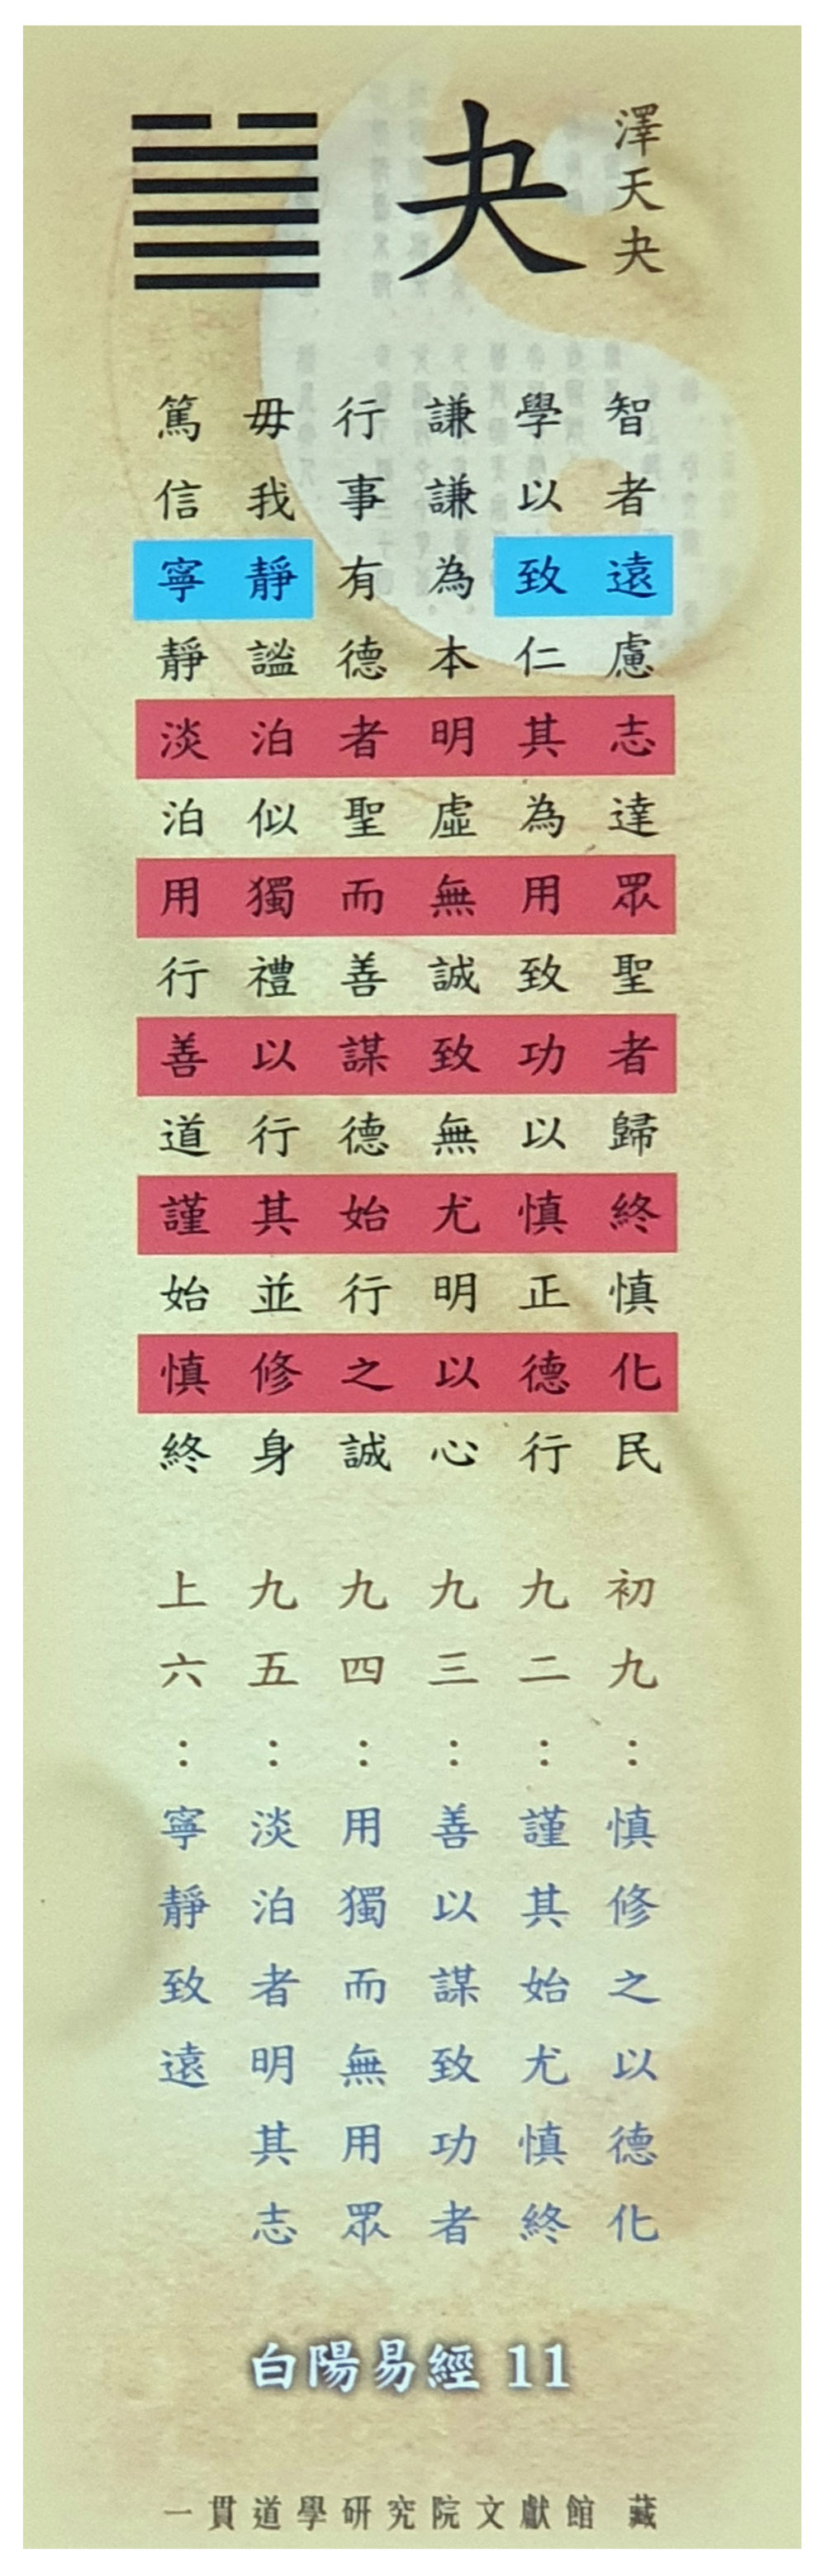 澤天夬
夬
智者遠慮志達眾聖者歸終慎化民
學以致仁其為用致功以慎正德行
謙謙為本明虛無誠致無尤明以心
行事有德者聖而善謀德始行之誠
毋我靜謐泊似獨禮以行其並修身
篤信寧靜淡泊用行善道謹始慎終
初九：慎修之以德化
九二：謹其始尤慎終
九三：善以謀致功者
九四：用獨而無用眾
九五：淡泊者明其志
上六：寧靜致遠
白陽易經 11
一貫道學研究院文獻館 藏